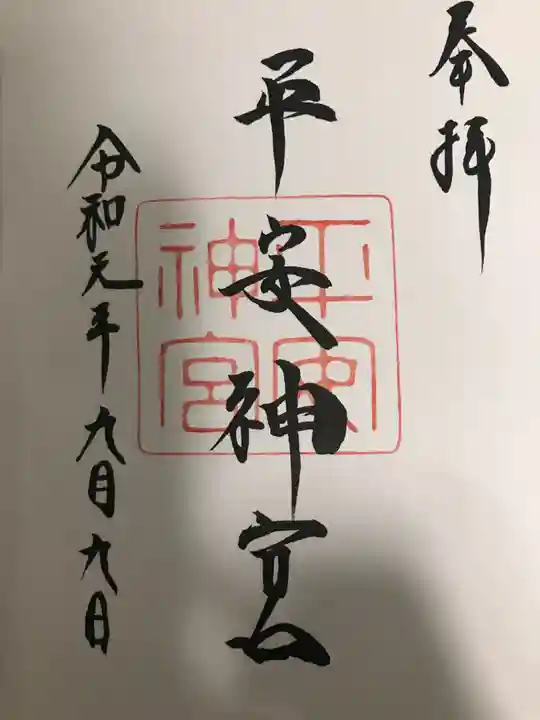 奉拝
平安神宮
平安神宮
令和元年九月九日